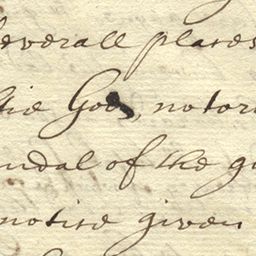 severall places
the Gods, notori
ndal of the g
notise given